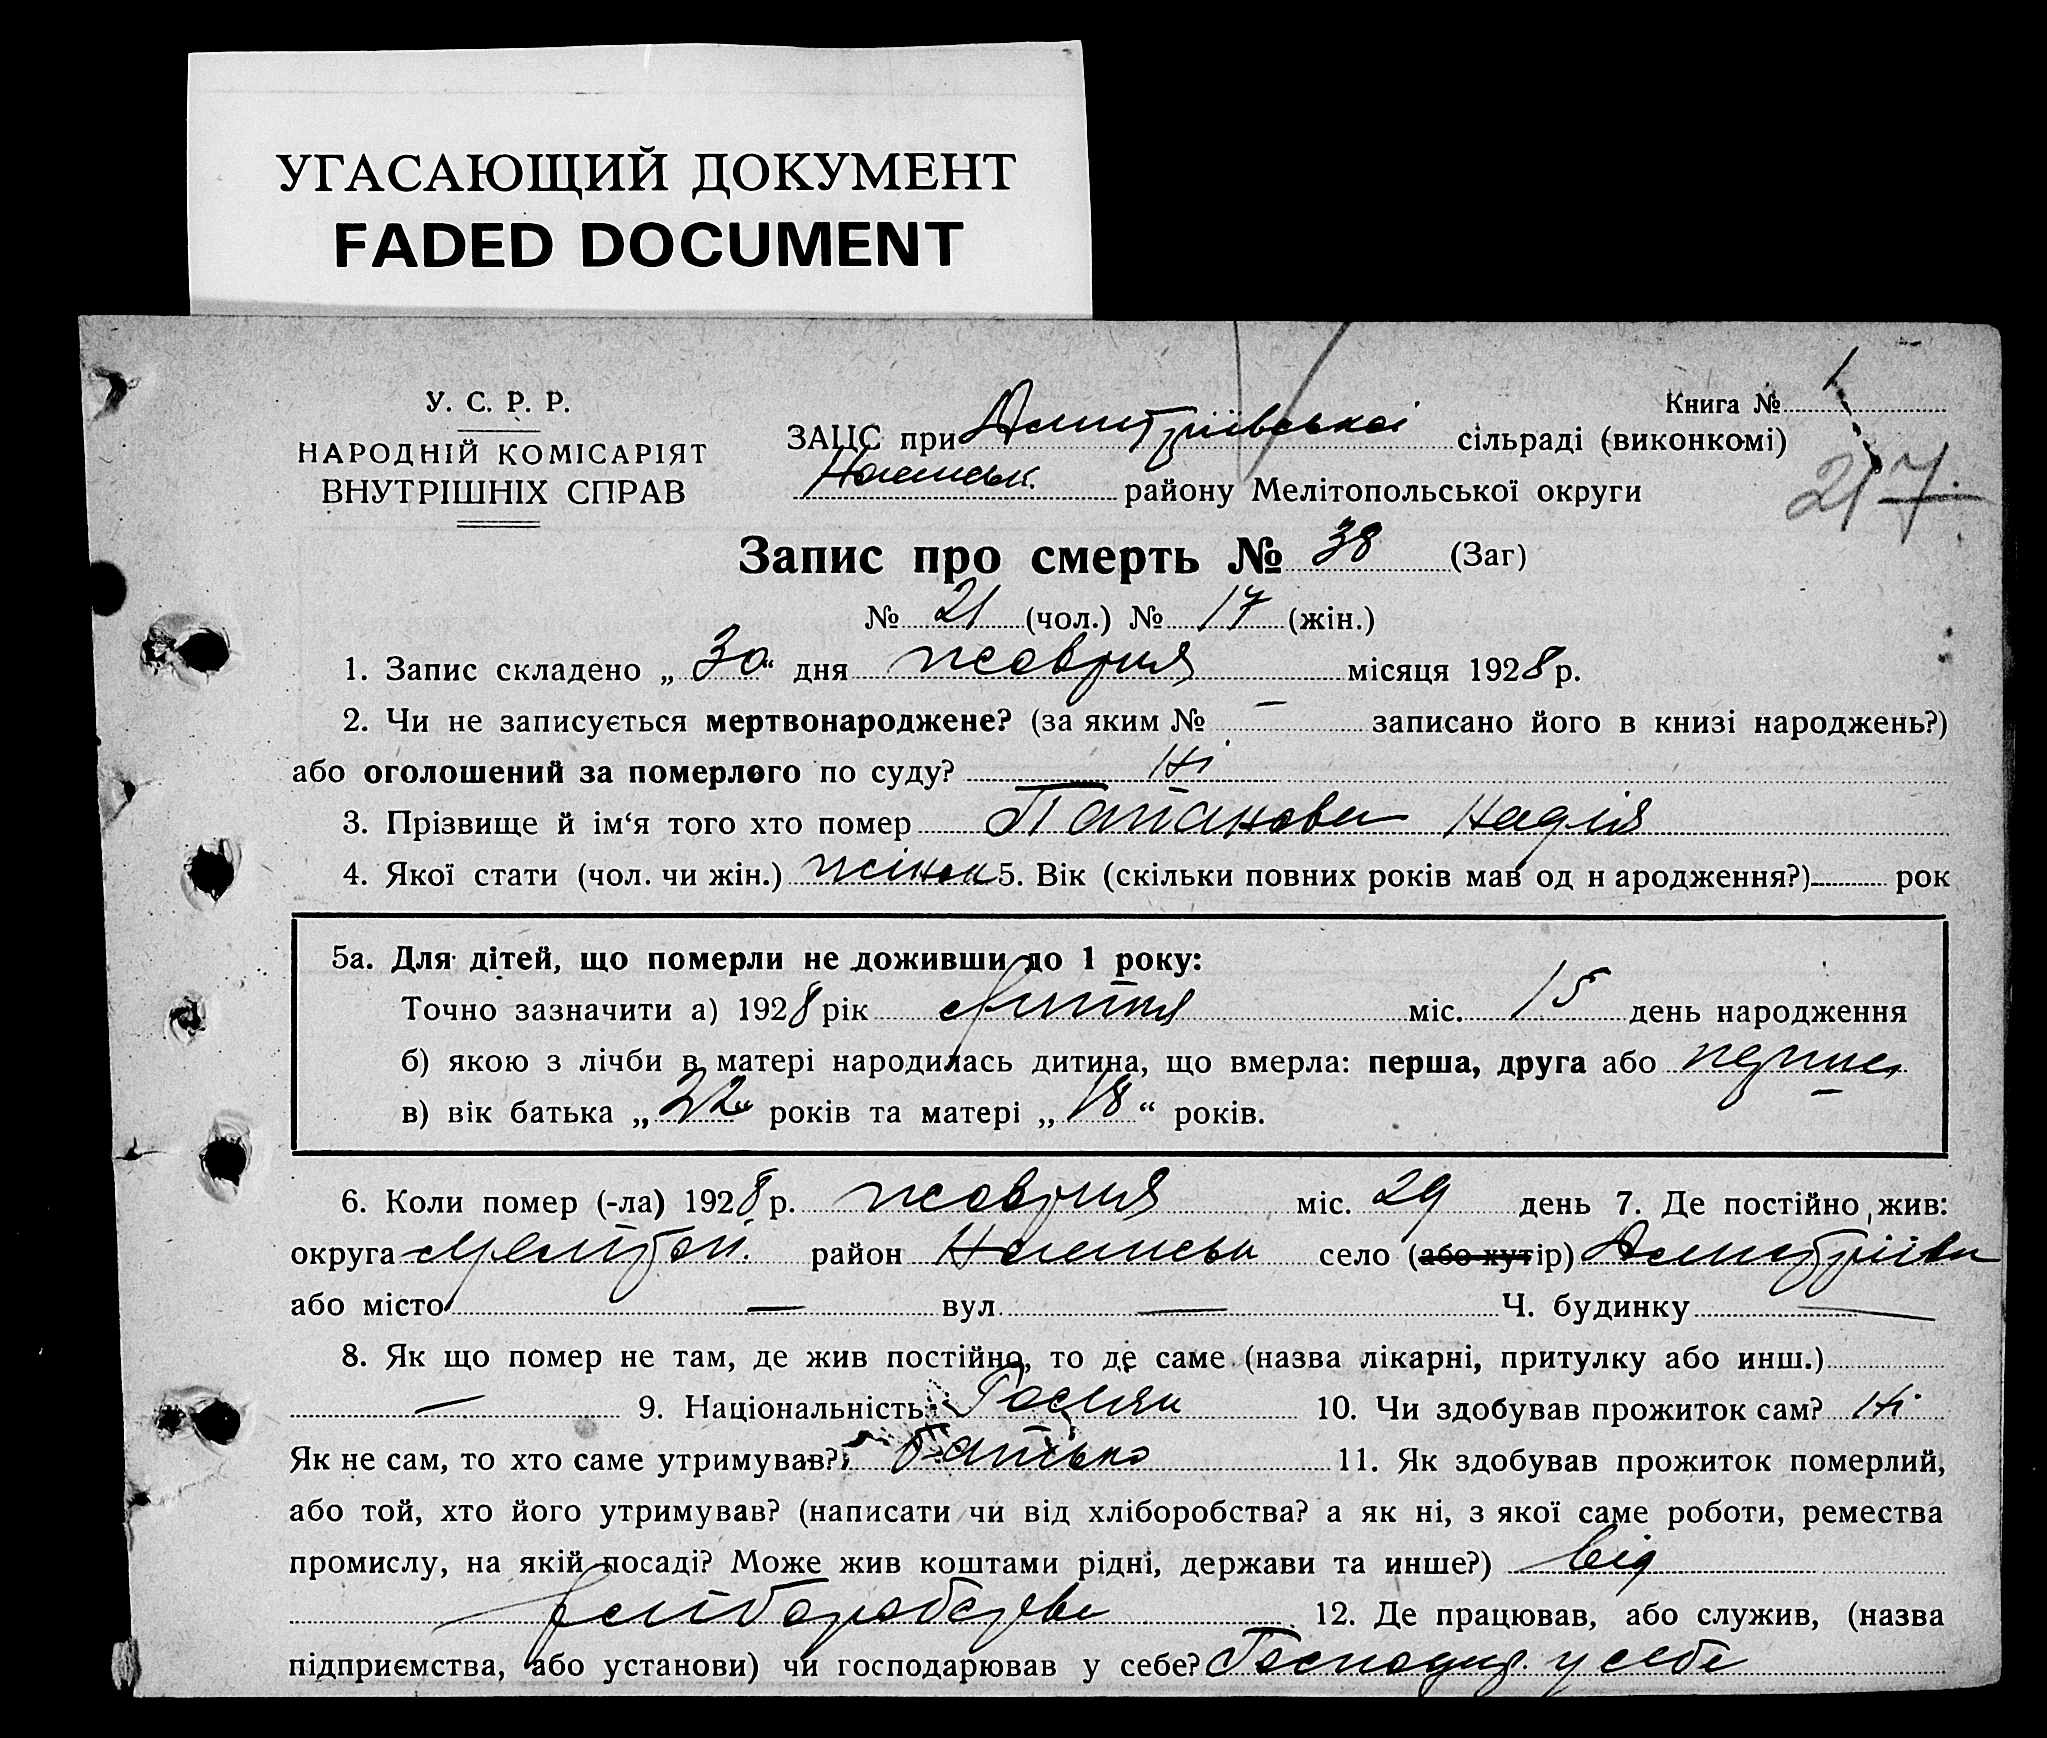 УГАСАЮЩИЙ ДОКУМЕНТ
FADED DOCUMENT
У. С. Р. Р.
НАРОДНІЙ КОМІСАРІЯТ
ВНУТРІШНІХ СПРАВ
Книга № 1
217
ЗАЦС при Дмитріївської сільраді (виконкомі)
району Мелітопольської округи
Запис про смерть № 38 (Заг)
№ 21 (чол.) № 17 (жін.)
1. Запис складено „ 30 “ дня жовтня місяця 1928 р.
2. Чи не записується мертвонароджене? (за яким № — записано його в книзі народжень?)
або оголошений за померлого по суду? Ні
3. Прізвище й ім‘я того хто помер Надія
4. Якої стати (чол. чи жін.) жіноч 5. Вік (скільки повних років мав од н ародження?) рок
5а. Для дітей, що померли не доживши до 1 року:
Точно зазначити а) 1928 рік міс. 15 день народження
б) якою з лічби в матері народилась дитина, що вмерла: перша, друга або перша
в) вік батька „ 22 “ років та матері „ 18 “ років.
6. Коли помер (-ла) 1928 р. жовтня міс. 29 день 7. Де постійно жив:
округа Мелітоп. район село (або хутір) Дмитріївка
або місто — вул. — Ч. будинку —
8. Як що помер не там, де жив постійно, то де саме (назва лікарні, притулку або инш.)
— 9. Національність 10. Чи здобував прожиток сам? Ні
Як не сам, то хто саме утримував? Батько 11. Як здобував прожиток померлий,
або той, хто його утримував? (написати чи від хліборобства? а як ні, з якої саме роботи, ремества
промислу, на якій посаді? Може жив коштами рідні, держави та инше?) від
хліборобства 12. Де працював, або служив, (назва
підприємства, або установи) чи господарював у себе? Господар. у себе